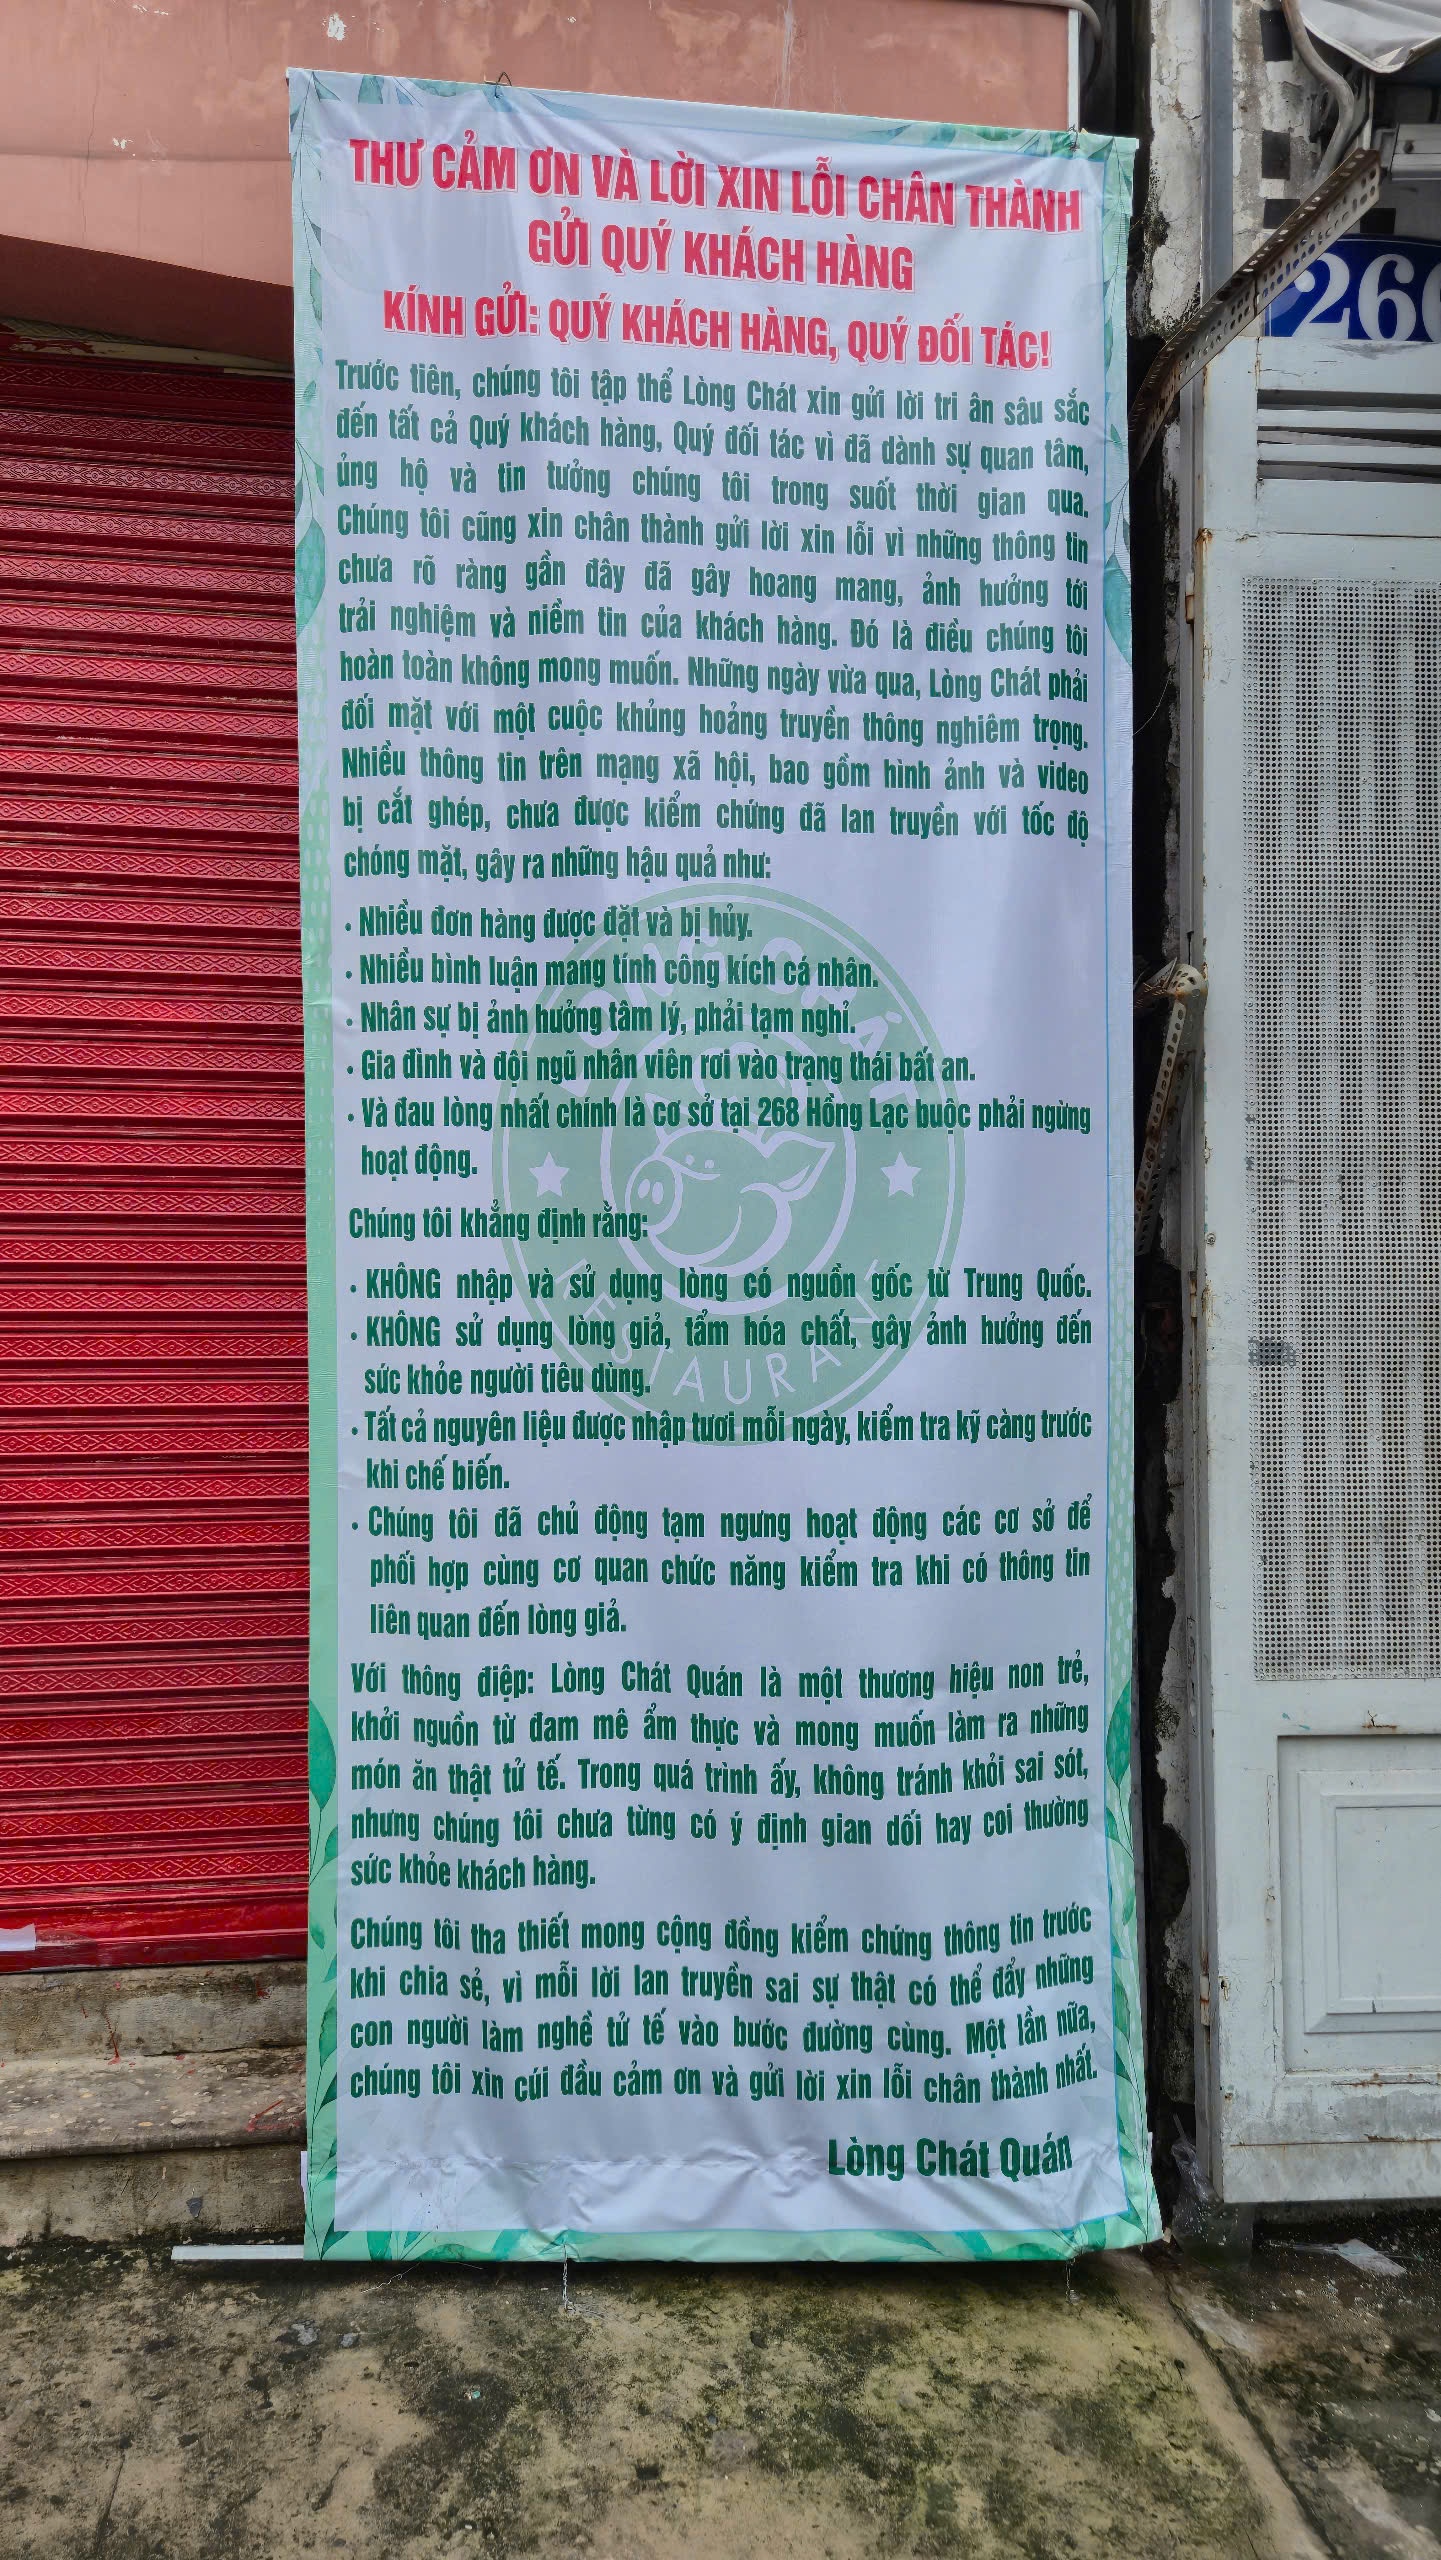 THƯ CẢM ƠN VÀ LỜI XIN LỖI CHÂN THÀNH
GỬI QUÝ KHÁCH HÀNG
KÍNH GỬI: QUÝ KHÁCH HÀNG, QUÝ ĐỐI TÁC!
Trước tiên, chúng tôi tập thể Lòng Chát xin gửi lời tri ân sâu sắc
đến tất cả Quý khách hàng, Quý đối tác vì đã dành sự quan tâm,
ủng hộ và tin tưởng chúng tôi trong suốt thời gian qua.
Chúng tôi cũng xin chân thành gửi lời xin lỗi vì những thông tin
chưa rõ ràng gần đây đã gây hoang mang, ảnh hưởng tới
trải nghiệm và niềm tin của khách hàng. Đó là điều chúng tôi
hoàn toàn không mong muốn. Những ngày vừa qua, Lòng Chát phải
đối mặt với một cuộc khủng hoảng truyền thông nghiêm trọng.
Nhiều thông tin trên mạng xã hội, bao gồm hình ảnh và video
bị cắt ghép, chưa được kiểm chứng đã lan truyền với tốc độ
chóng mặt, gây ra những hậu quả như:
• Nhiều đơn hàng được đặt và bị hủy.
• Nhiều bình luận mang tính công kích cá nhân.
• Nhân sự bị ảnh hưởng tâm lý, phải tạm nghỉ.
• Gia đình và đội ngũ nhân viên rơi vào trạng thái bất an.
• Và đau lòng nhất chính là cơ sở tại 268 Hồng Lạc buộc phải ngừng
hoạt động.
Chúng tôi khẳng định rằng:
• KHÔNG nhập và sử dụng lòng có nguồn gốc từ Trung Quốc.
• KHÔNG sử dụng lòng giả, tẩm hóa chất, gây ảnh hưởng đến
sức khỏe người tiêu dùng.
• Tất cả nguyên liệu được nhập tươi mỗi ngày, kiểm tra kỹ càng trước
khi chế biến.
• Chúng tôi đã chủ động tạm ngưng hoạt động các cơ sở để
phối hợp cùng cơ quan chức năng kiểm tra khi có thông tin
liên quan đến lòng giả.
Với thông điệp: Lòng Chát Quán là một thương hiệu non trẻ,
khởi nguồn từ đam mê ẩm thực và mong muốn làm ra những
món ăn thật tử tế. Trong quá trình ấy, không tránh khỏi sai sót,
nhưng chúng tôi chưa từng có ý định gian dối hay coi thường
sức khỏe khách hàng.
Chúng tôi tha thiết mong cộng đồng kiểm chứng thông tin trước
khi chia sẻ, vì mỗi lời lan truyền sai sự thật có thể đẩy những
con người làm nghề tử tế vào bước đường cùng. Một lần nữa,
chúng tôi xin cúi đầu cảm ơn và gửi lời xin lỗi chân thành nhất.
Lòng Chát Quán